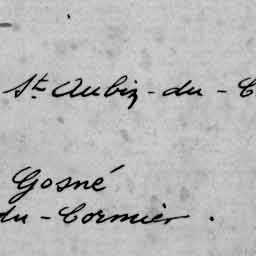 St. Aubin-du-C
Gosné
du-Cormier.